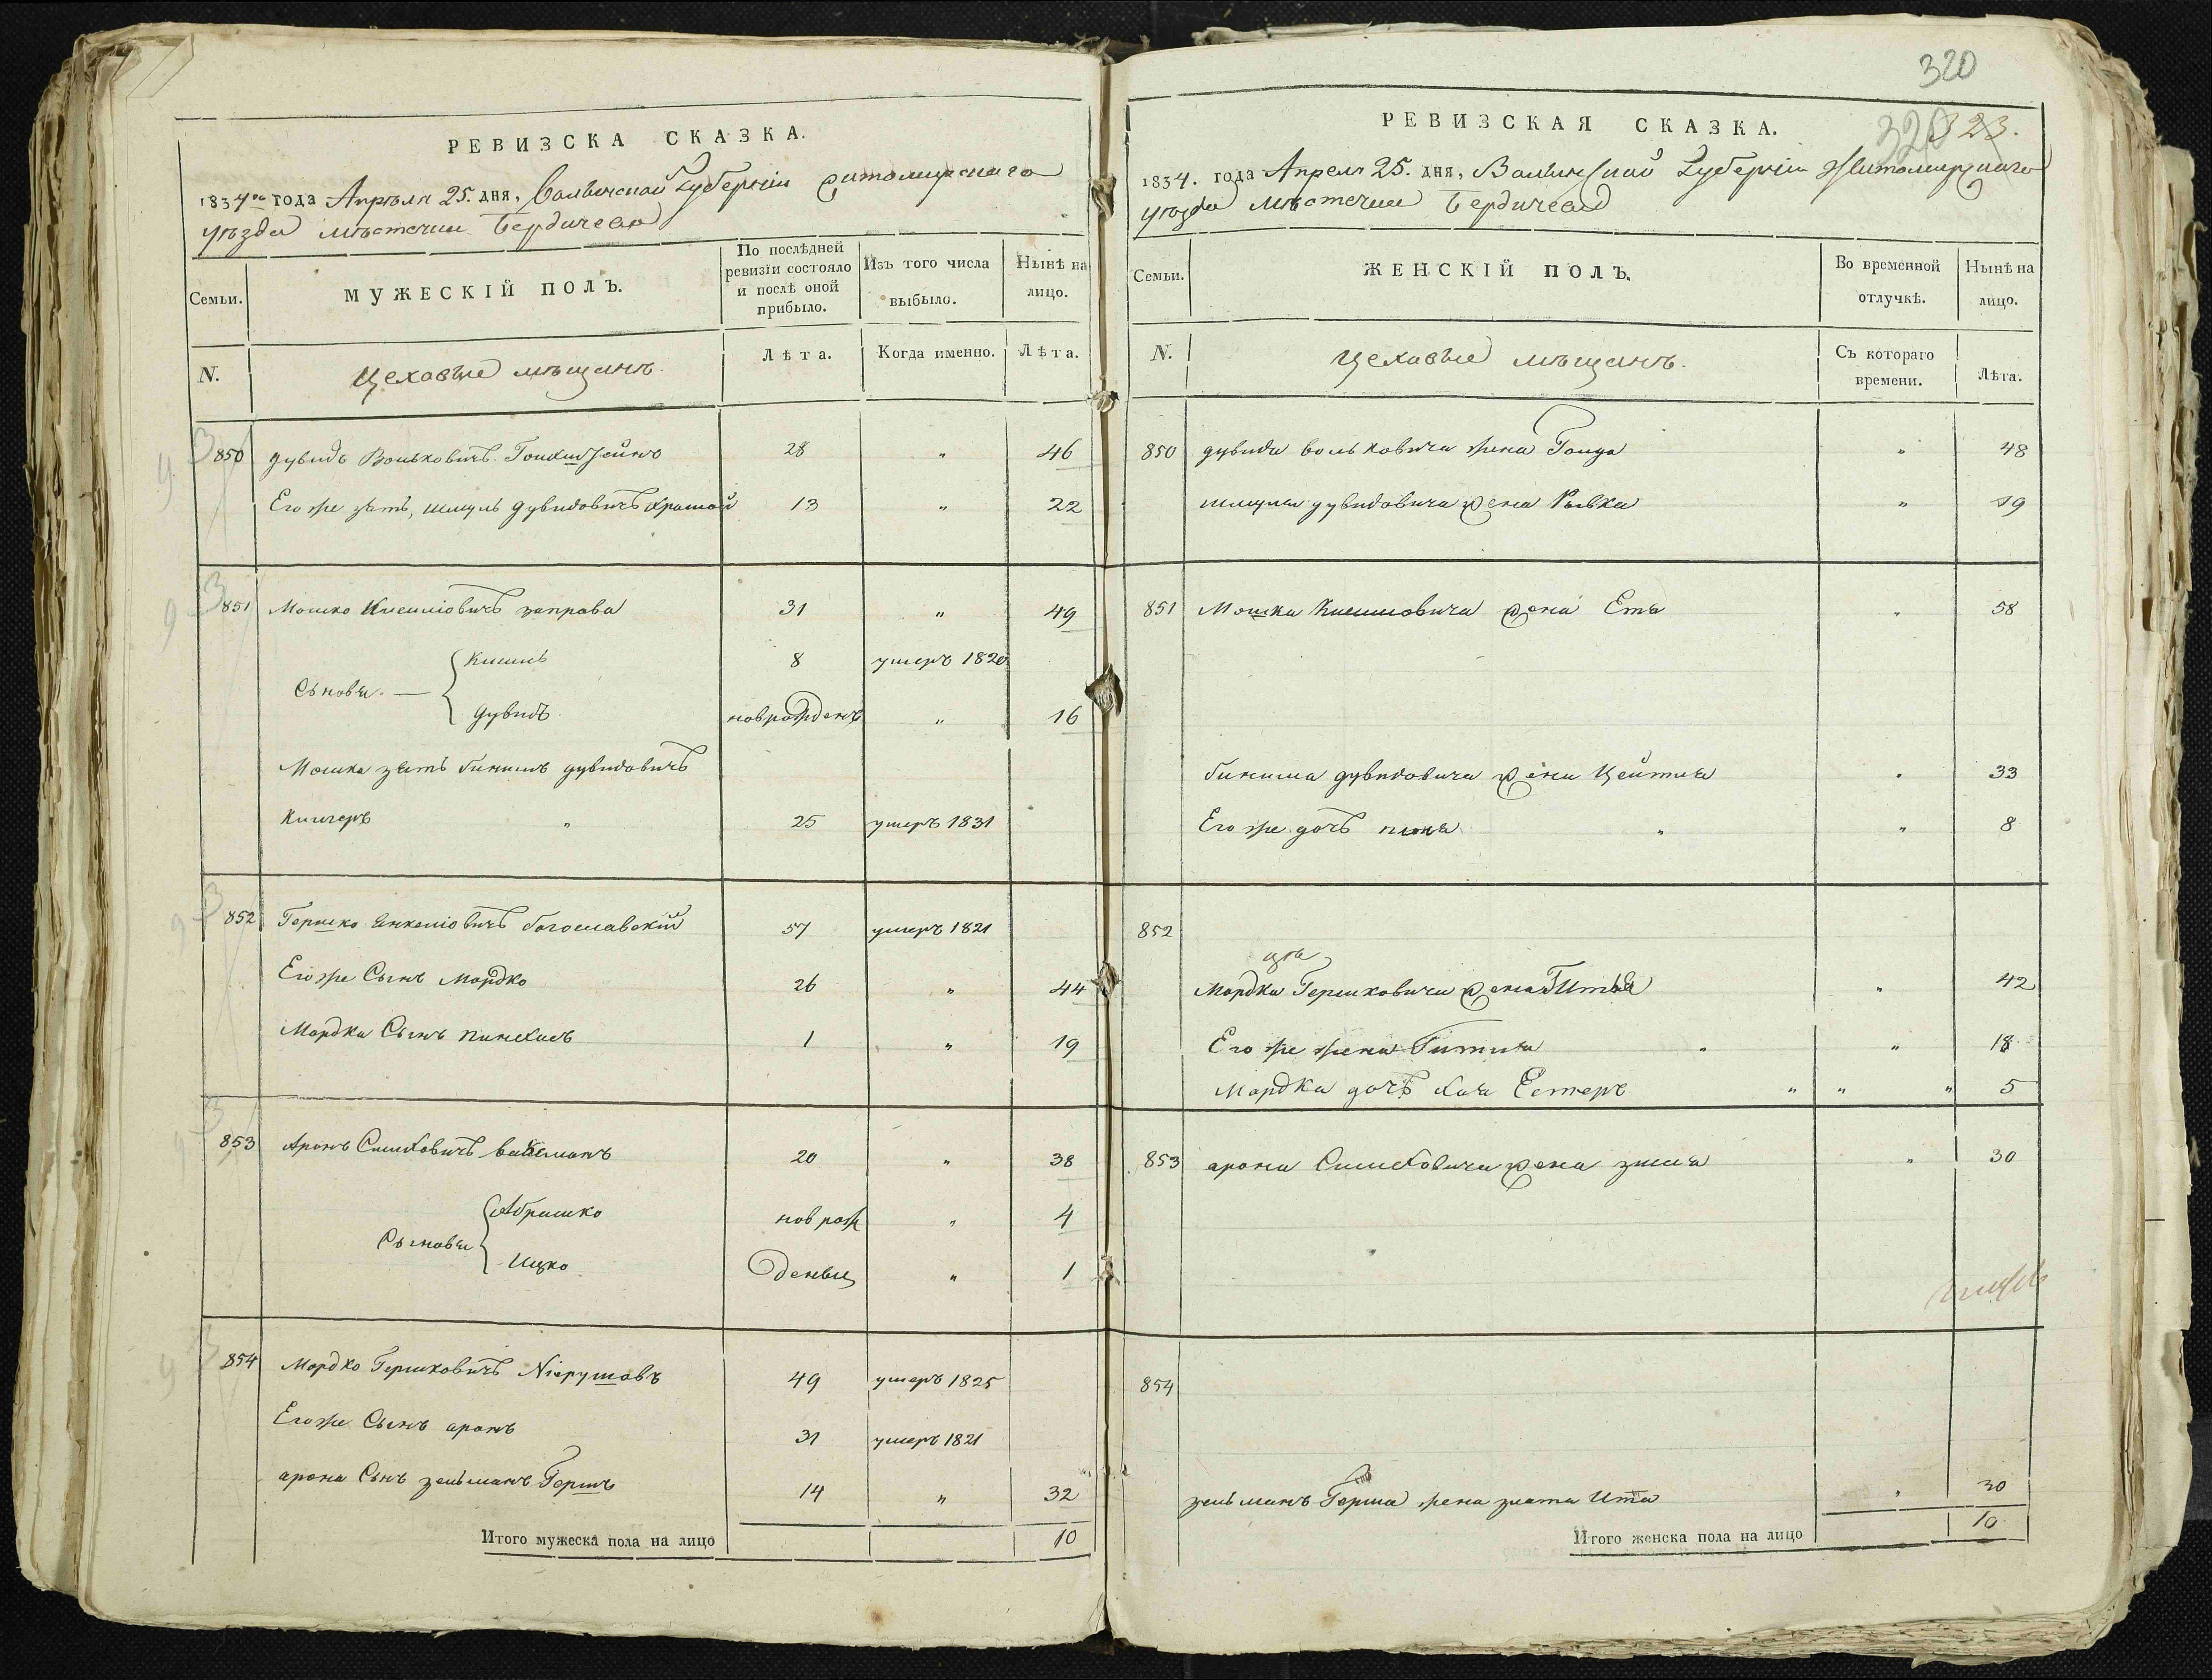 320
РЕВИЗСКА СКАЗКА.
1834го года Апрѣля 25. дня, Волынской Губерніи Житомирскаго
уѣзда мѣстечки Бердичева
Семьи.
МУЖЕСКІЙ ПОЛЪ.
По послѣдней ревизіи состояло и послѣ оной прибыло.
Изъ того числа выбыло.
Нынѣ на лицо.
N.
Цеховые мѣщанъ.
Лѣта.
Когда именно.
Лѣта.
850 Дувидъ Вольковичъ 28 " 46
Его же зять, Шмуль Дувидовичъ 13 " 22
851 Мошко Киселіовичъ заправа 31 " 49
Сыновя. — Кисиль 8 умеръ 1820
Дувидъ новрожденъ " 16
Мошка зять бинишъ дувидовичъ
Кишнеръ " 25 умеръ 1831
852 Гершко Янкеліовичъ богославскій 57 умеръ 1821
Его же Сынъ Мордко 26 " 44
Мордка Сынъ Пинехасъ 1 " 19
853 Аронъ Симховичъ 20 " 38
Сыновя Абрашко новрож " 4
Ицко денны " 1
854 Мордко Гершковичъ 49 умеръ 1825
Его же Сынъ аронъ 31 умеръ 1821
арона Сынъ зельманъ Гершъ 14 " 32
Итого мужеска пола на лицо 10
РЕВИЗСКАЯ СКАЗКА.
320 323.
1834. года Апреля 25. дня, Волынской Губерніи Житомирскаго
уѣзда Мѣстечки Бердичева
Семьи.
ЖЕНСКІЙ ПОЛЪ.
Во временной отлучкѣ.
Нынѣ на лицо.
N.
Цеховые мѣщанъ.
Съ котораго времени.
Лѣта.
850 дувида вольковича жена Голда " 48
шмуля дувидовича жена Рывка " 19
851 Мошка Киселиовича жена Етя " 58
биниша дувидовича жена Цейтля " 33
Его же дочь " " 8
852
Мордка Гершковича жена " 42
Его же жена Гитля " " 18
Мордка дочь Хая Естеръ " " " 5
853 арона Симховича жена зисля " 30
854
зельманъ Герша жена злата Ита " 30
Итого женска пола на лицо 10